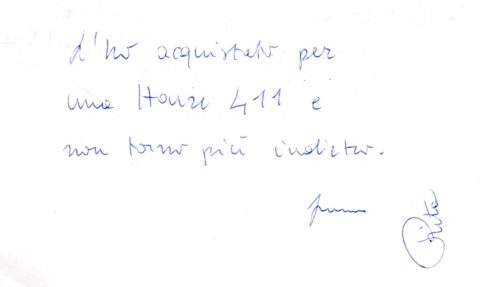 L'ho acquistato per
una Honze 411 e
non torno più indietro.
Rita